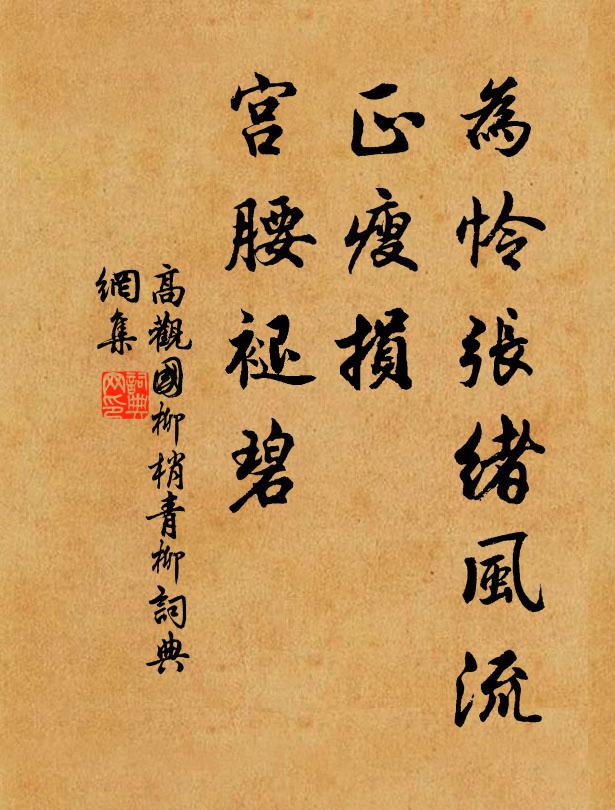 為怜張緒風流
正瘦損
宮腰褪碧
高觀國柳梢青柳詞典
網集
詞典
网印